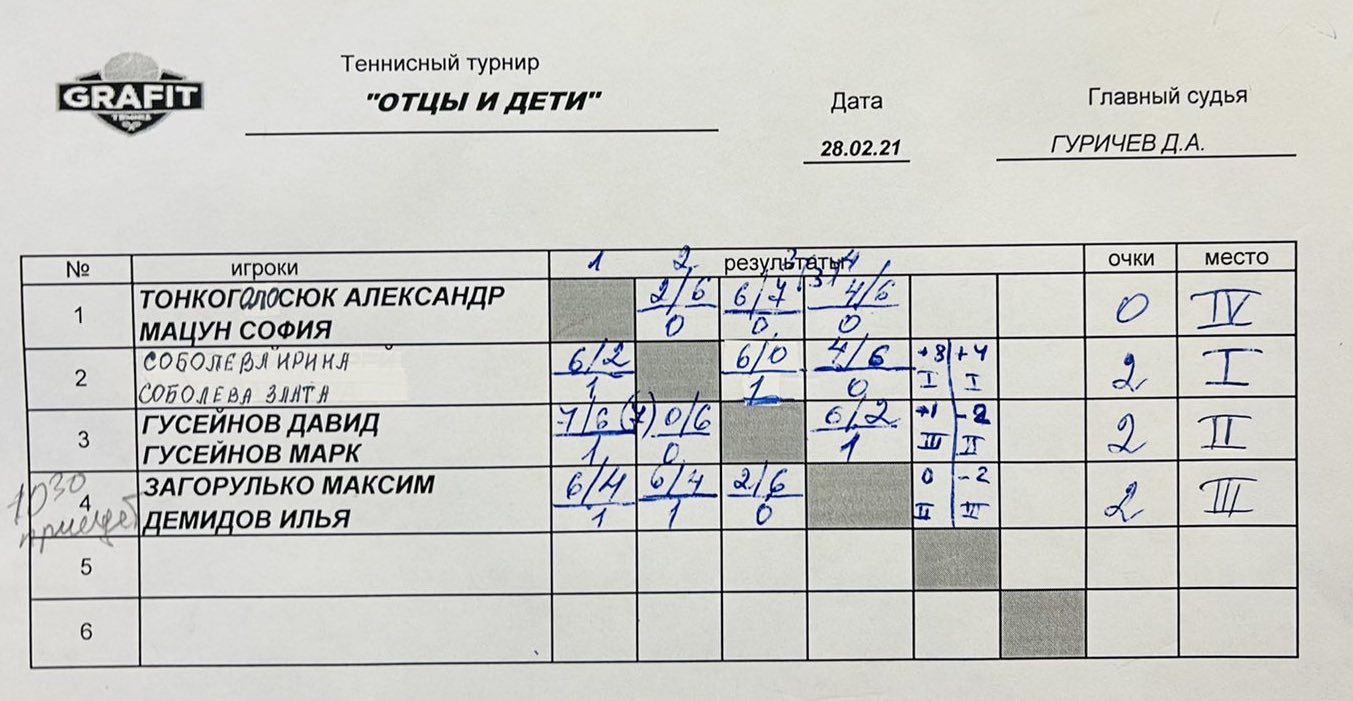 GRAFIT
Теннисный турнир
"ОТЦЫ И ДЕТИ"
Дата
28.02.21
Главный судья
ГУРИЧЕВ Д.А.
№ игроки 1 2 результаты 3 4 очки место
1 ТОНКОГОЛОСЮК АЛЕКСАНДР 2/6 6/7 4/6 0 IV
МАЦУН СОФИЯ 0 0 0
2 СОБОЛЕВА ИРИНА 6/2 6/0 4/6 +8 +4 2 I
СОБОЛЕВА ЗЛАТА 1 1 0 I I
3 ГУСЕЙНОВ ДАВИД 7/6(7) 0/6 6/2 +1 -2 2 II
ГУСЕЙНОВ МАРК 1 0 1 III II
10 30
4 ЗАГОРУЛЬКО МАКСИМ 6/4 6/4 2/6 0 -2 2 III
ДЕМИДОВ ИЛЬЯ 1 1 0 II III
5
6